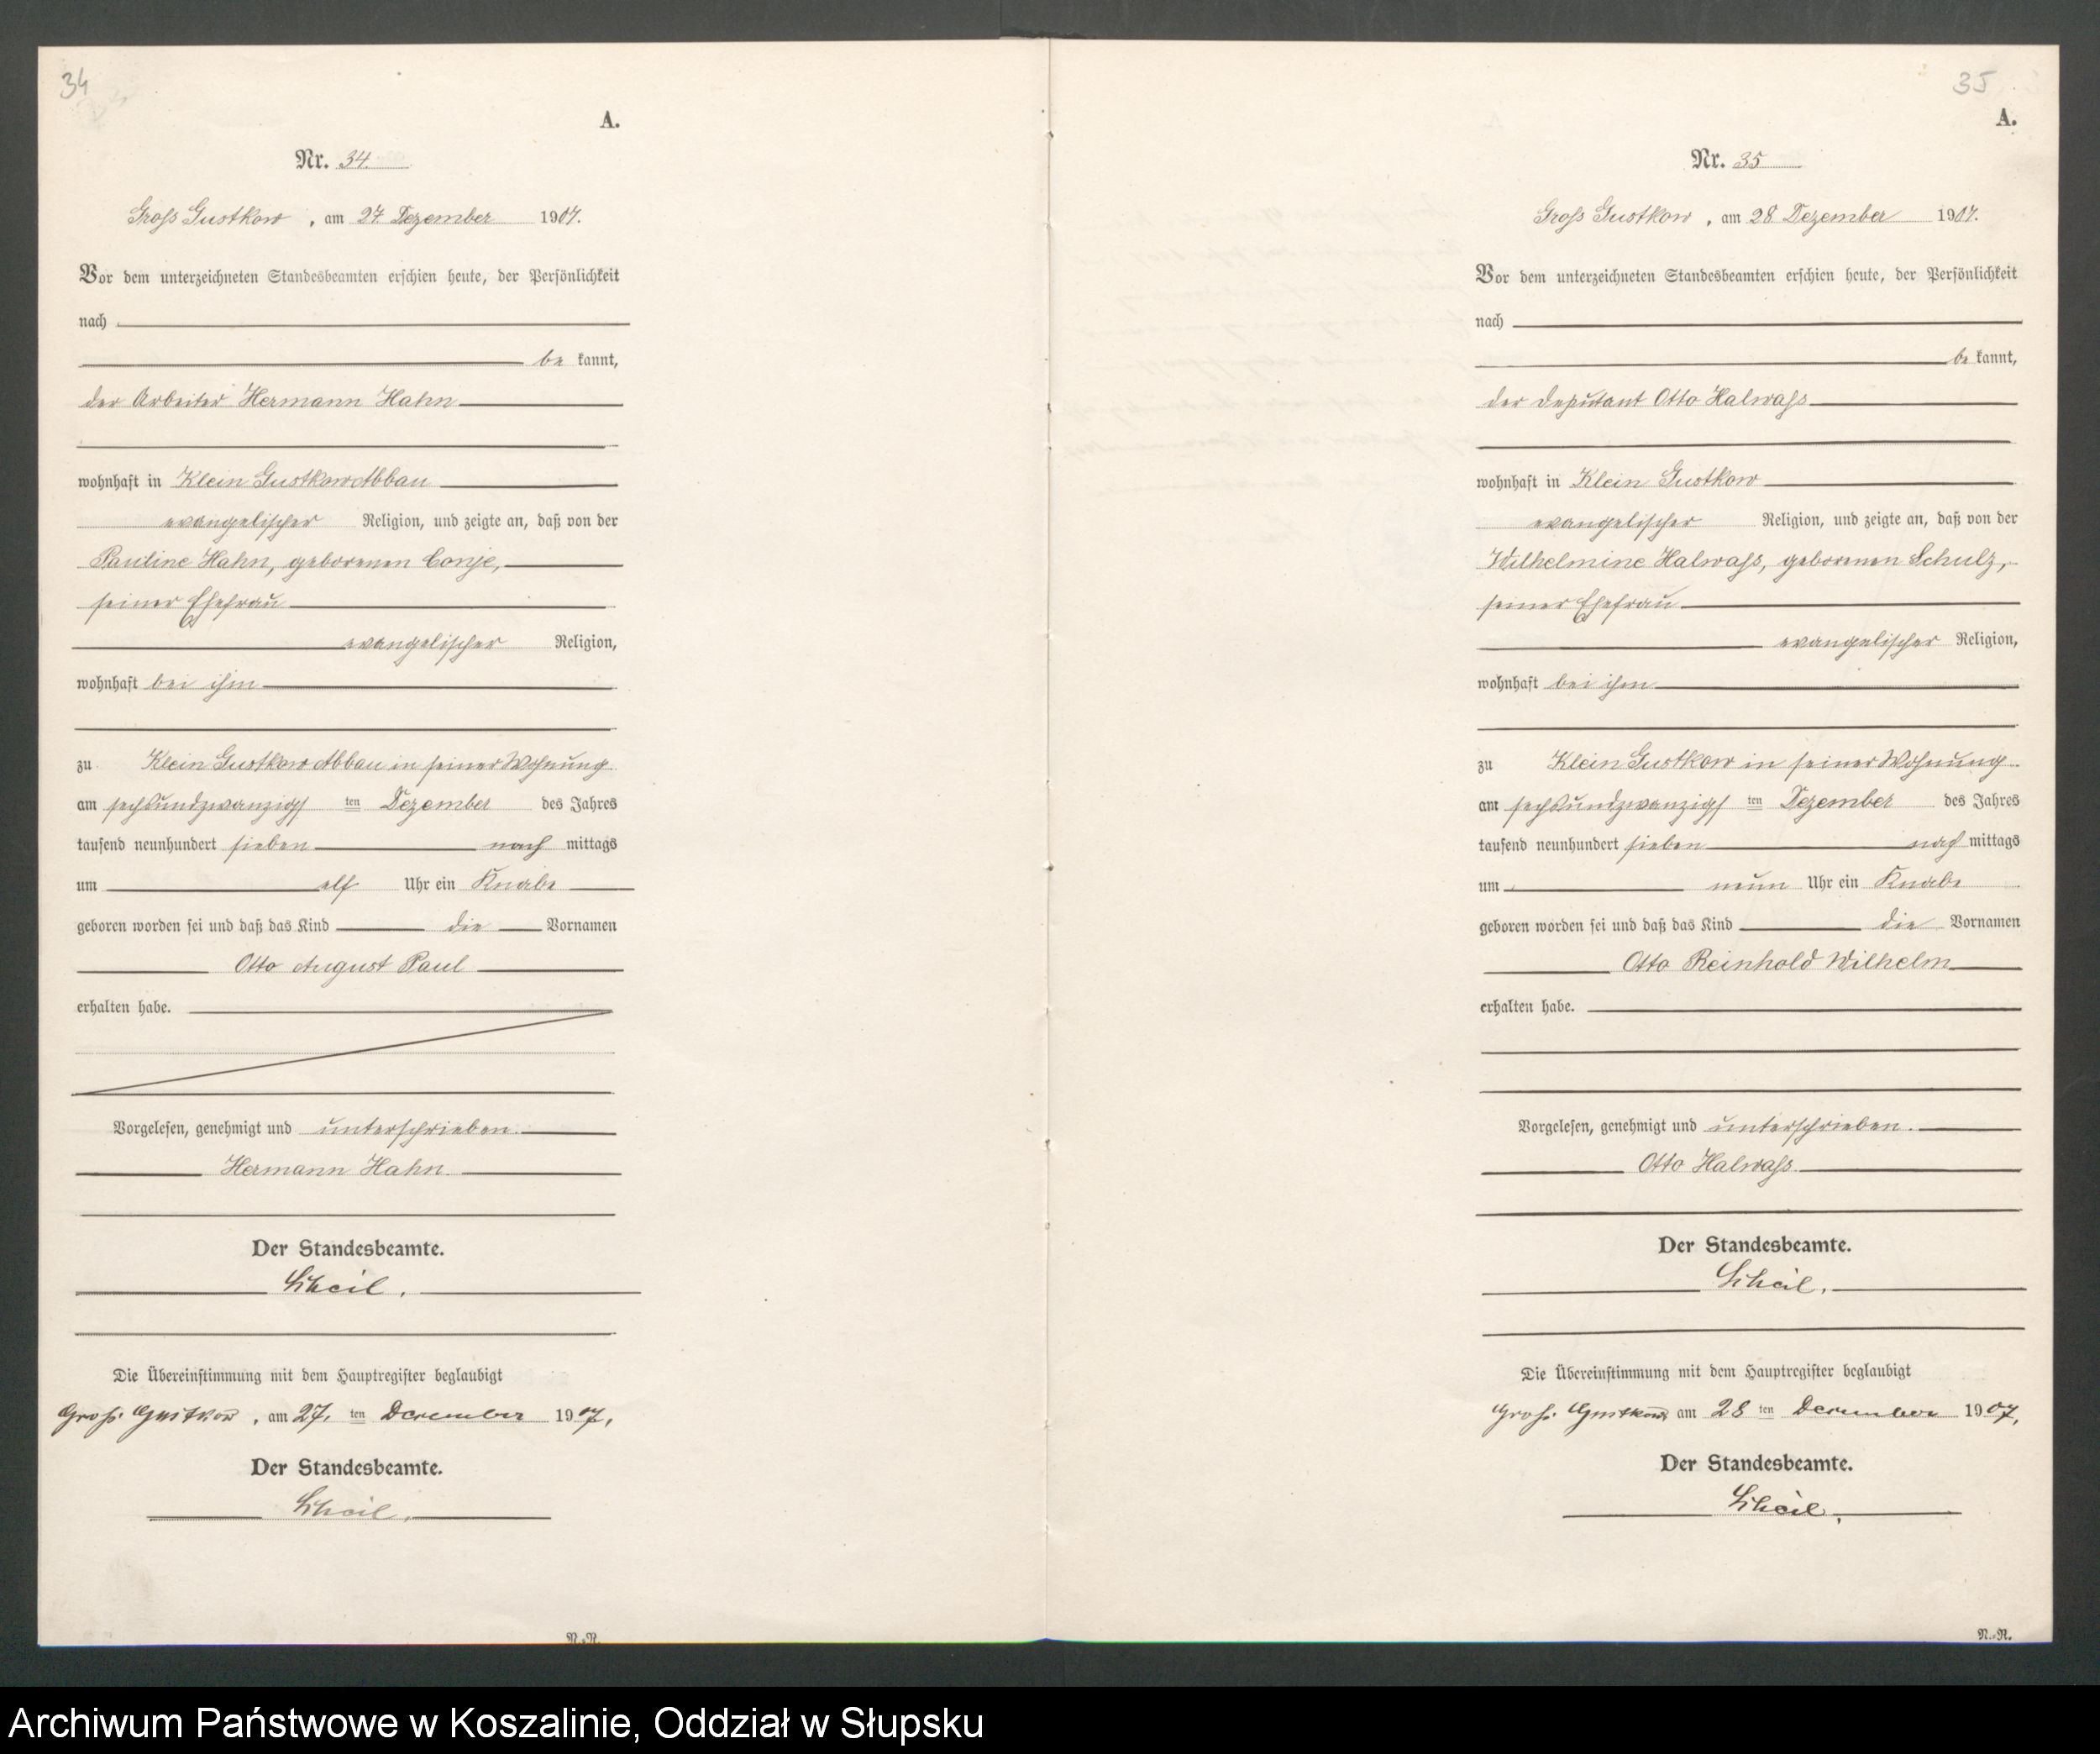 34
A.
Nr. 34.
Gross Gustkow, am 27 Dezember 1907.
Vor dem unterzeichneten Standesbeamten erschien heute, der Persönlichkeit
nach
be kannt,
der Arbeiter Hermann Hahn
wohnhaft in Klein Gustkow Abbau
evangelischer Religion, und zeigte an, daß von der
Pauline Hahn, geborenen Conje,
seiner Ehefrau
evangelischer Religion,
wohnhaft bei ihm
zu Klein Gustkow Abbau in seiner Wohnung
am sechsundzwanzigs ten Dezember des Jahres
tausend neunhundert sieben nach mittags
um elf Uhr ein Knabe
geboren worden sei und daß das Kind die Vornamen
Otto August Paul
erhalten habe.
Vorgelesen, genehmigt und unterschrieben.
Hermann Hahn.
Der Standesbeamte.
Scheil.
Die Übereinstimmung mit dem Hauptregister beglaubigt
Groß Gustkow, am 27. ten Dezember 1907.
Der Standesbeamte.
Scheil.
N.-N.
35
A.
Nr. 35
Gross Gustkow, am 28 Dezember 1907.
Vor dem unterzeichneten Standesbeamten erschien heute, der Persönlichkeit
nach
be kannt,
der Deputant Otto Halwass
wohnhaft in Klein Gustkow
evangelischer Religion, und zeigte an, daß von der
Wilhelmine Halwass, geborenen Schulz,
seiner Ehefrau
evangelischer Religion,
wohnhaft bei ihm
zu Klein Gustkow in seiner Wohnung
am sechsundzwanzigs ten Dezember des Jahres
tausend neunhundert sieben nach mittags
um neun Uhr ein Knabe
geboren worden sei und daß das Kind die Vornamen
Otto Reinhold Wilhelm
erhalten habe.
Vorgelesen, genehmigt und unterschrieben.
Otto Halwass.
Der Standesbeamte.
Scheil.
Die Übereinstimmung mit dem Hauptregister beglaubigt
Groß Gustkow am 28 ten Dezember 1907.
Der Standesbeamte.
Scheil.
N.-N.
Archiwum Państwowe w Koszalinie, Oddział w Słupsku